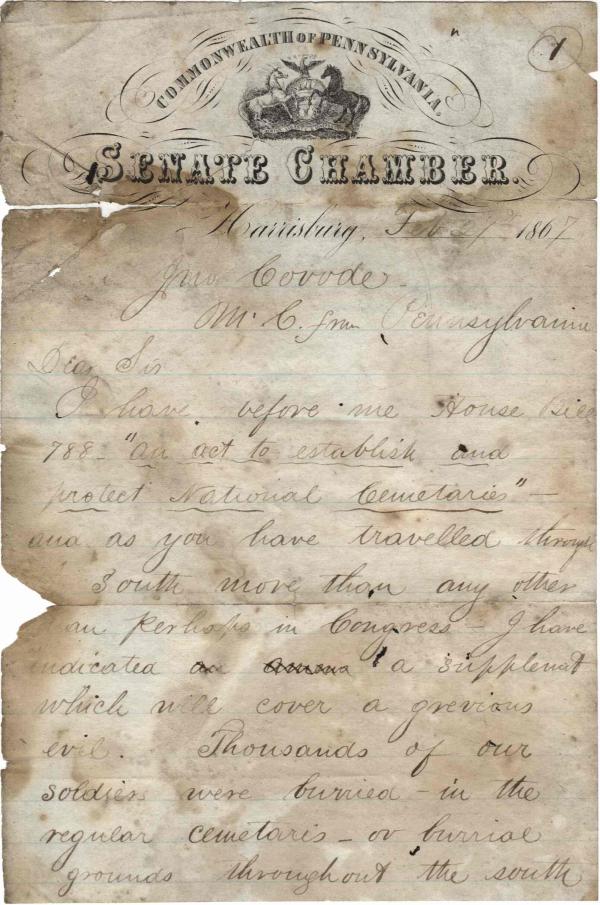 1
COMMONWEALTH OF PENNSYLVANIA.
SENATE CHAMBER.
Harrisburg, Feb 27th 1867
Jno Covode.
M. C. from Pennsylvania
Dear Sir
I have before me House Bill
788 - "an act to establish and
protect National Cemetaries" -
and as you have travelled through
South more than any other
an perhaps in Congress - I have
indicated a supplemt
which will cover a grevious
evil. Thousands of our
soldiers were burried - in the
regular cemetaris - or burrial
grounds throughout the south